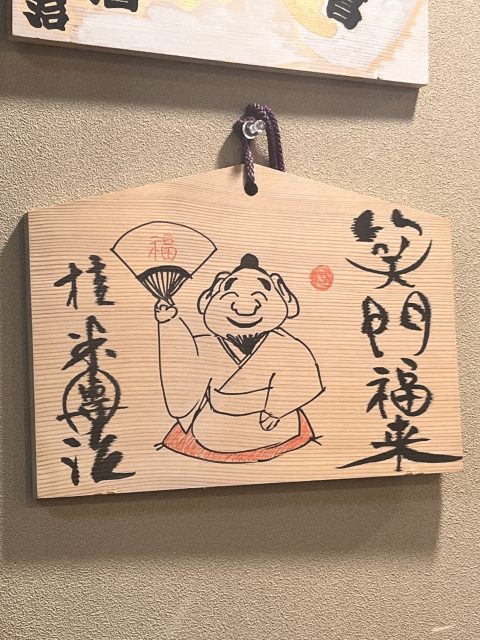 笑門福来
福
桂米團治